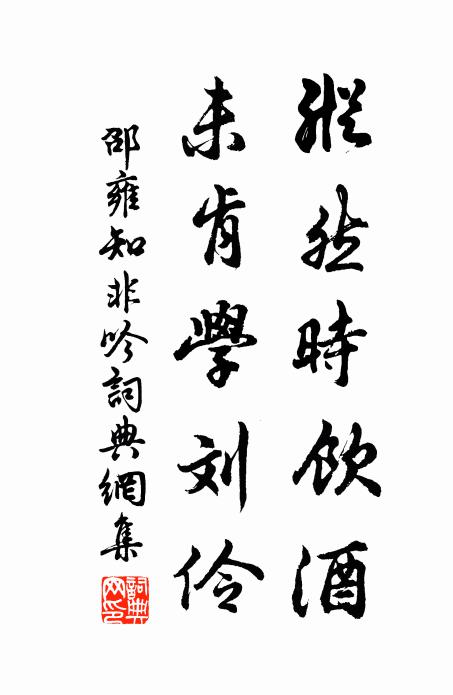 縱然時飲酒
未肯學刘伶
邵雍知非吟詞典網集
詞典网印